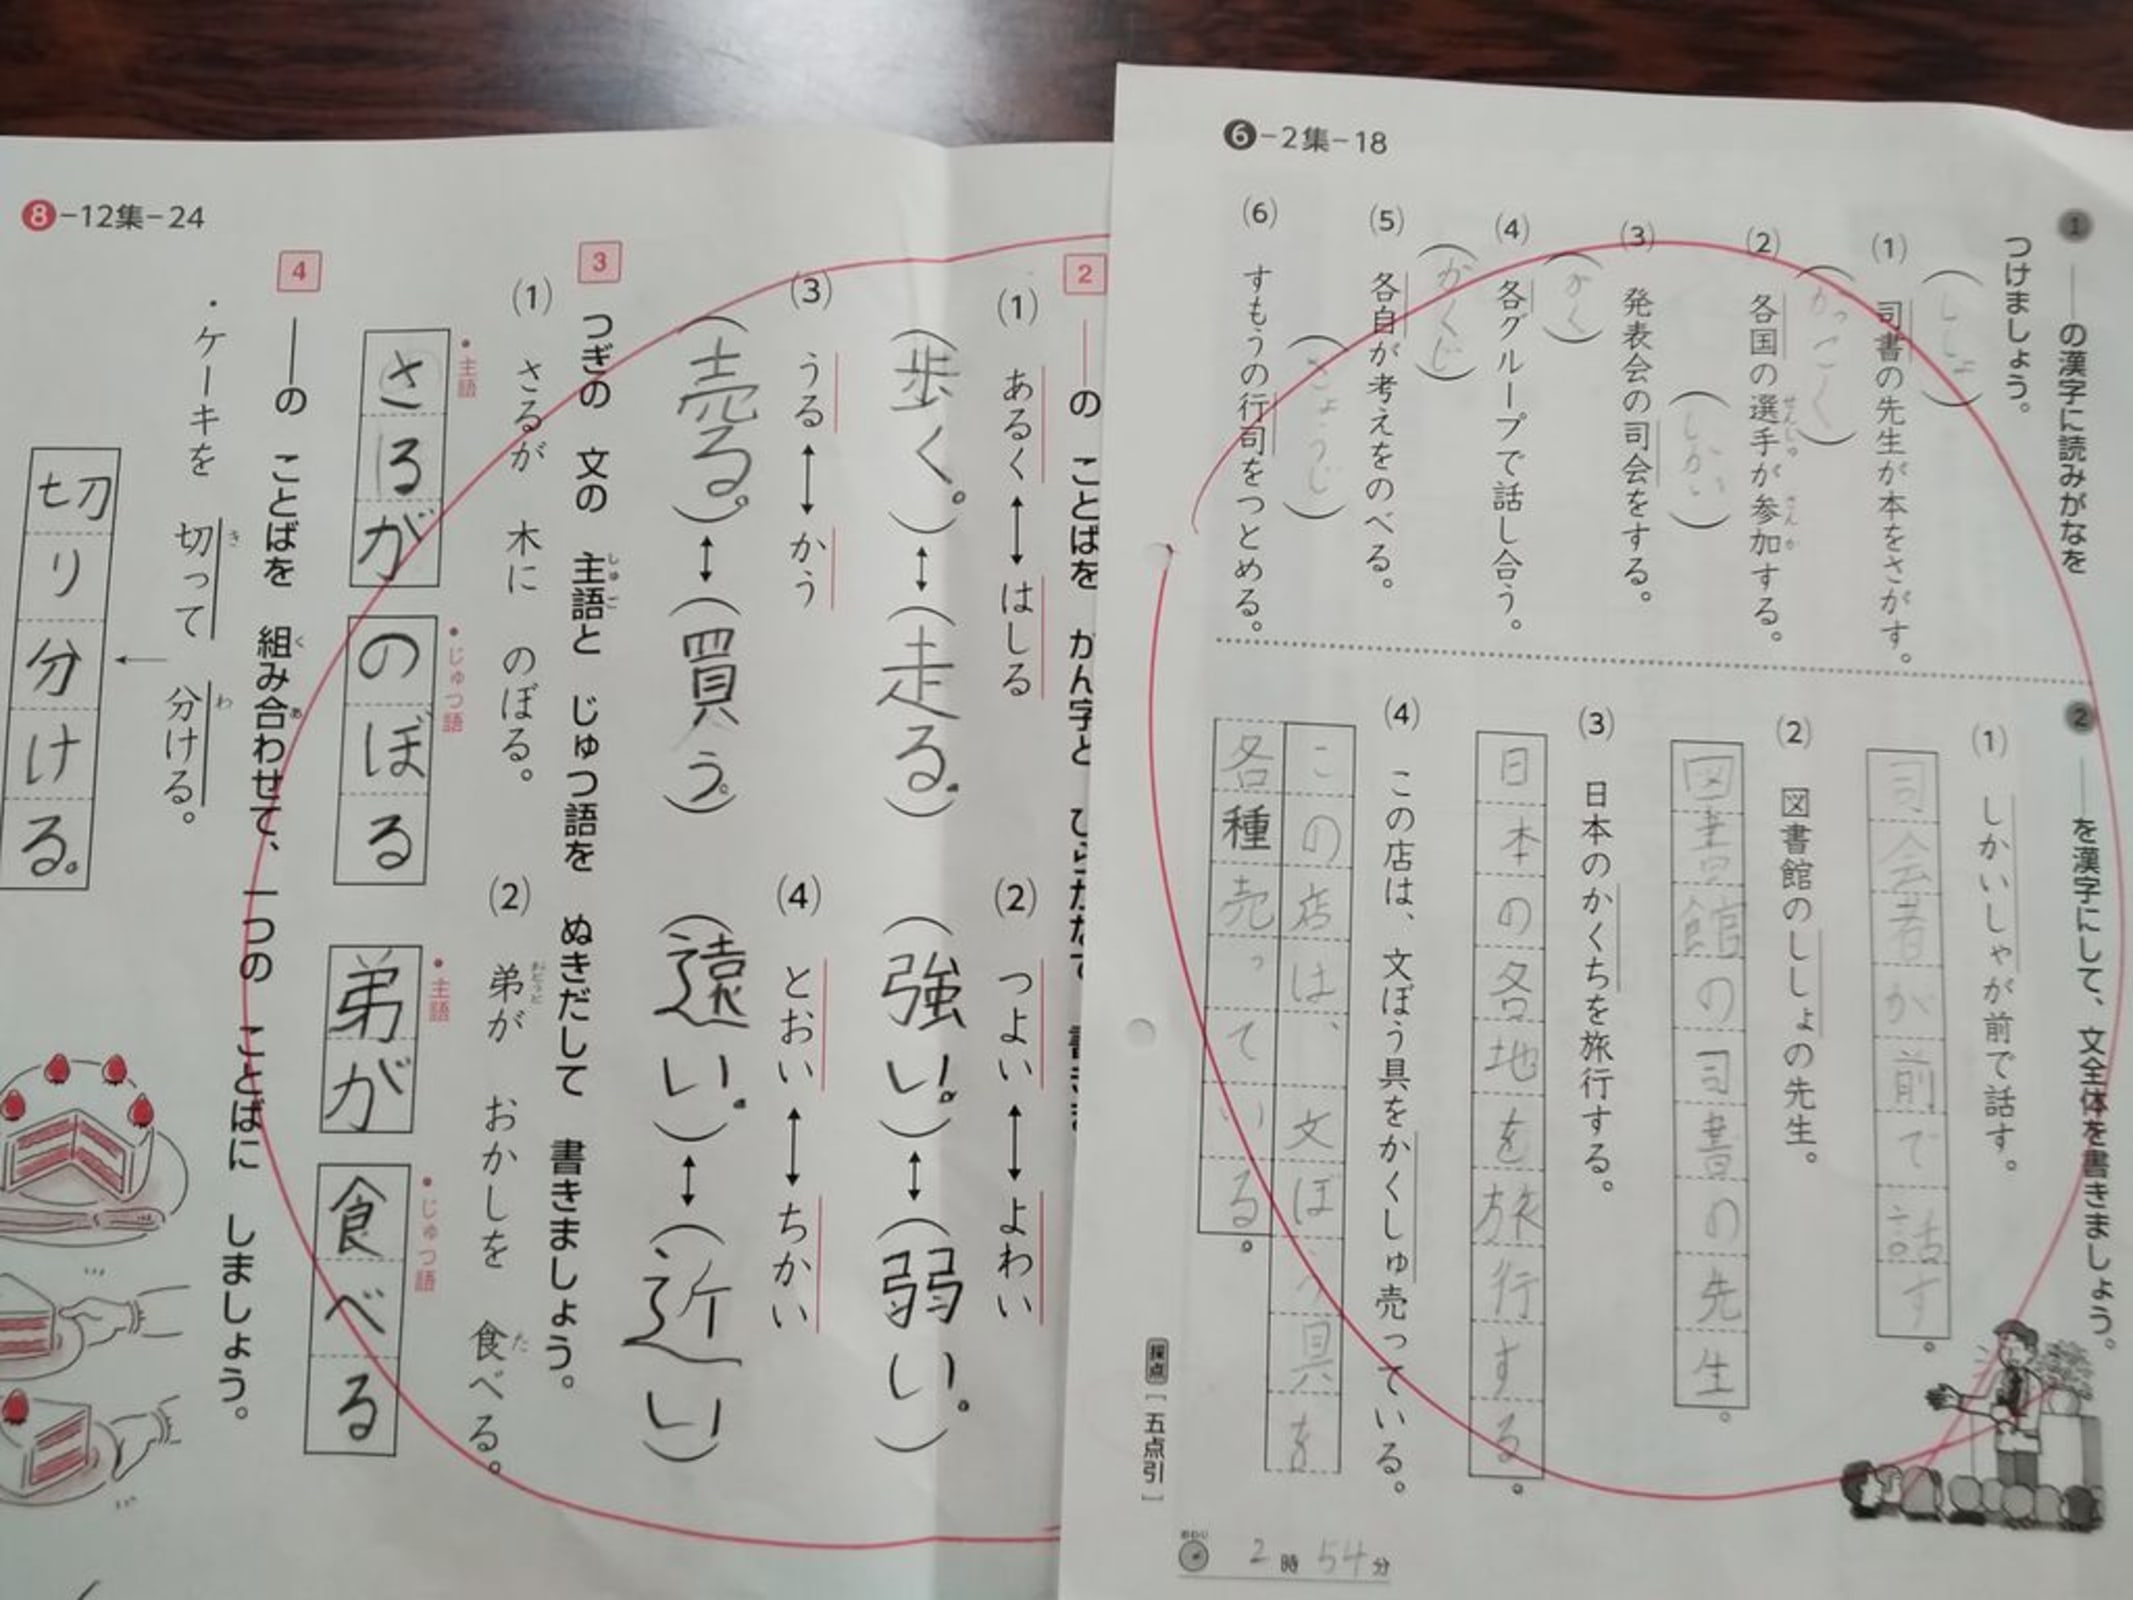 ❻−2集−18
❶ ──の漢字に読みがなを
つけましょう。
(1) 司書の先生が本をさがす。
(ししょ)
(2) 各国の選手が参加する。
せんしゅ さんか
(かっこく)
(3) 発表会の司会をする。
(しかい)
(4) 各グループで話し合う。
(かく)
(5) 各自が考えをのべる。
(かくじ)
(6) すもうの行司をつとめる。
(ぎょうじ)
❷ ──を漢字にして、文全体を書きましょう。
(1) しかいしゃが前で話す。
司会者が前で話す。
(2) 図書館のししょの先生。
図書館の司書の先生。
(3) 日本のかくちを旅行する。
日本の各地を旅行する。
(4) この店は、文ぼう具をかくしゅ売っている。
この店は、文ぼう具を
各種売っている。
採点[五点引]
おわり 2時54分
8−12集−24
2 ──の ことばを かん字と
(1) あるく↔はしる
(歩く。)↔(走る。)
(2) つよい↔よわい
(強い。)↔(弱い。)
(3) うる↔かう
(売る。)↔(買う。)
(4) とおい↔ちかい
(遠い。)↔(近い)
3 つぎの 文の 主語と じゅつ語を ぬきだして 書きましょう。
しゅご
(1) さるが 木に のぼる。
・主語 ・じゅつ語
さるが のぼる
(2) 弟が おかしを 食べる。
おとうと た
・主語 ・じゅつ語
弟が 食べる
4 ──の ことばを 組み合わせて、一つの ことばに しましょう。
く あ
・ケーキを 切って 分ける。
き わ
切り分ける。